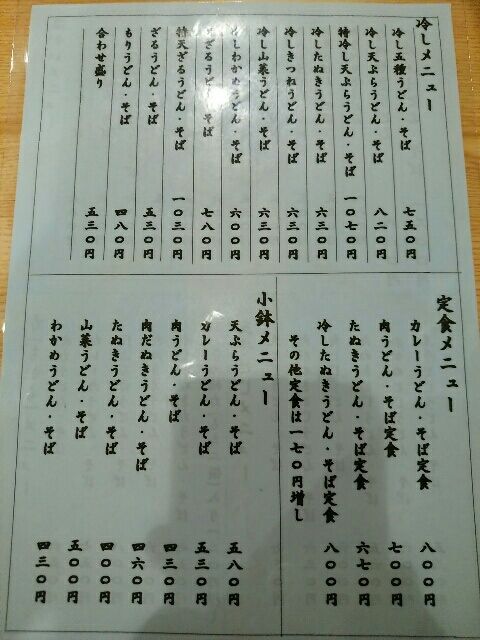 冷しメニュー
冷し五種うどん・そば 七五〇円
冷し天ぷらうどん・そば 八二〇円
特冷し天ぷらうどん・そば 一〇七〇円
冷したぬきうどん・そば 六三〇円
冷しきつねうどん・そば 六三〇円
冷し山菜うどん・そば 六三〇円
冷しわかめうどん・そば 六〇〇円
ざるうどん・そば 七八〇円
特天ざるうどん・そば 一〇三〇円
ざるうどん・そば 五三〇円
もりうどん・そば 四八〇円
合わせ盛り 五三〇円
定食メニュー
カレーうどん・そば定食 八〇〇円
肉うどん・そば定食 七〇〇円
たぬきうどん・そば定食 六七〇円
冷したぬきうどん・そば定食 八〇〇円
その他定食は一七〇円増し
小鉢メニュー
天ぷらうどん・そば 五八〇円
カレーうどん・そば 五三〇円
肉うどん・そば 四三〇円
肉だぬきうどん・そば 四六〇円
たぬきうどん・そば 四〇〇円
山菜うどん・そば 五〇〇円
わかめうどん・そば 四三〇円